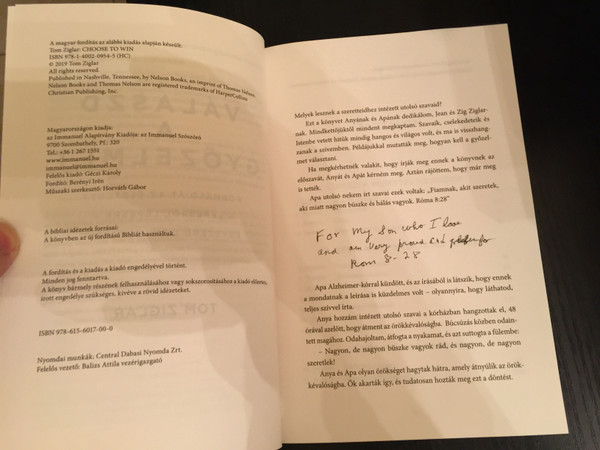 A magyar fordítás az alábbi kiadás alapján készült:
Tom Ziglar: CHOOSE TO WIN
ISBN 978-1-4002-0954-5 (HC)
© 2019 Tom Ziglar
All rights reserved.
Published in Nashville, Tennessee, by Nelson Books, an imprint of Thomas Nelson.
Nelson Books and Thomas Nelson are registered trademarks of HarperCollins
Christian Publishing, Inc.
Magyarországon kiadja:
az Immanuel Alapítvány Kiadója: az Immanuel Szószóró
9700 Szombathely, Pf.: 320
Tel.: +36 1 267 1551
www.immanuel.hu
immanuel@immanuel.hu
Felelős kiadó: Géczi Károly
Fordító: Berényi Irén
Műszaki szerkesztő: Horváth Gábor
A bibliai idézetek forrásai:
A könyvben az új fordítású Bibliát használtuk.
A fordítás és a kiadás a kiadó engedélyével történt.
Minden jog fenntartva.
A könyv bármely részének felhasználásához vagy sokszorosításához a kiadó előzetes,
írott engedélye szükséges, kivéve a rövid idézeteket.
ISBN 978-615-6017-00-0
Nyomdai munkák: Central Dabasi Nyomda Zrt.
Felelős vezető: Balizs Attila vezérigazgató
Melyek lesznek a szeretteidhez intézett utolsó szavaid?
Ezt a könyvet Anyának és Apának dedikálom, Jean és Zig Ziglar-
nak. Mindkettőjüktől mindent megkaptam. Szavaik, cselekedeteik és
Istenbe vetett hitük mindig hangos és világos volt, és ma is visszhang-
zanak a szívemben. Példájukkal mutatták meg, hogyan kell a győzel-
met választani.
Ha megkérhetnék valakit, hogy írják meg ennek a könyvnek az
előszavát, Anyát és Apát kérném meg. Aztán rájöttem, hogy már meg
is tették.
Apa utolsó nekem írt szavai ezek voltak: „Fiamnak, akit szeretek,
aki miatt nagyon büszke és hálás vagyok. Róma 8:28”
For My Son who I love
and am very proud and
Rom 8-28
Apa Alzheimer-kórral küzdött, és az írásából is látszik, hogy ennek
a mondatnak a leírása is küzdelmes volt – olyannyira, hogy láthatod,
teljes szívvel írta.
Anya hozzám intézett utolsó szavai a kórházban hangzottak el, 48
órával azelőtt, hogy átment az örökkévalóságba. Búcsúzás közben odain-
tett magához. Odahajoltam, átfogta a nyakamat, és azt suttogta a fülembe:
– Nagyon, de nagyon büszke vagyok rád, és nagyon, de nagyon
szeretlek!
Anya és Apa olyan örökséget hagytak hátra, amely átnyúlik az örök-
kévalóságba. Ők akarták így, és tudatosan hozták meg ezt a döntést.